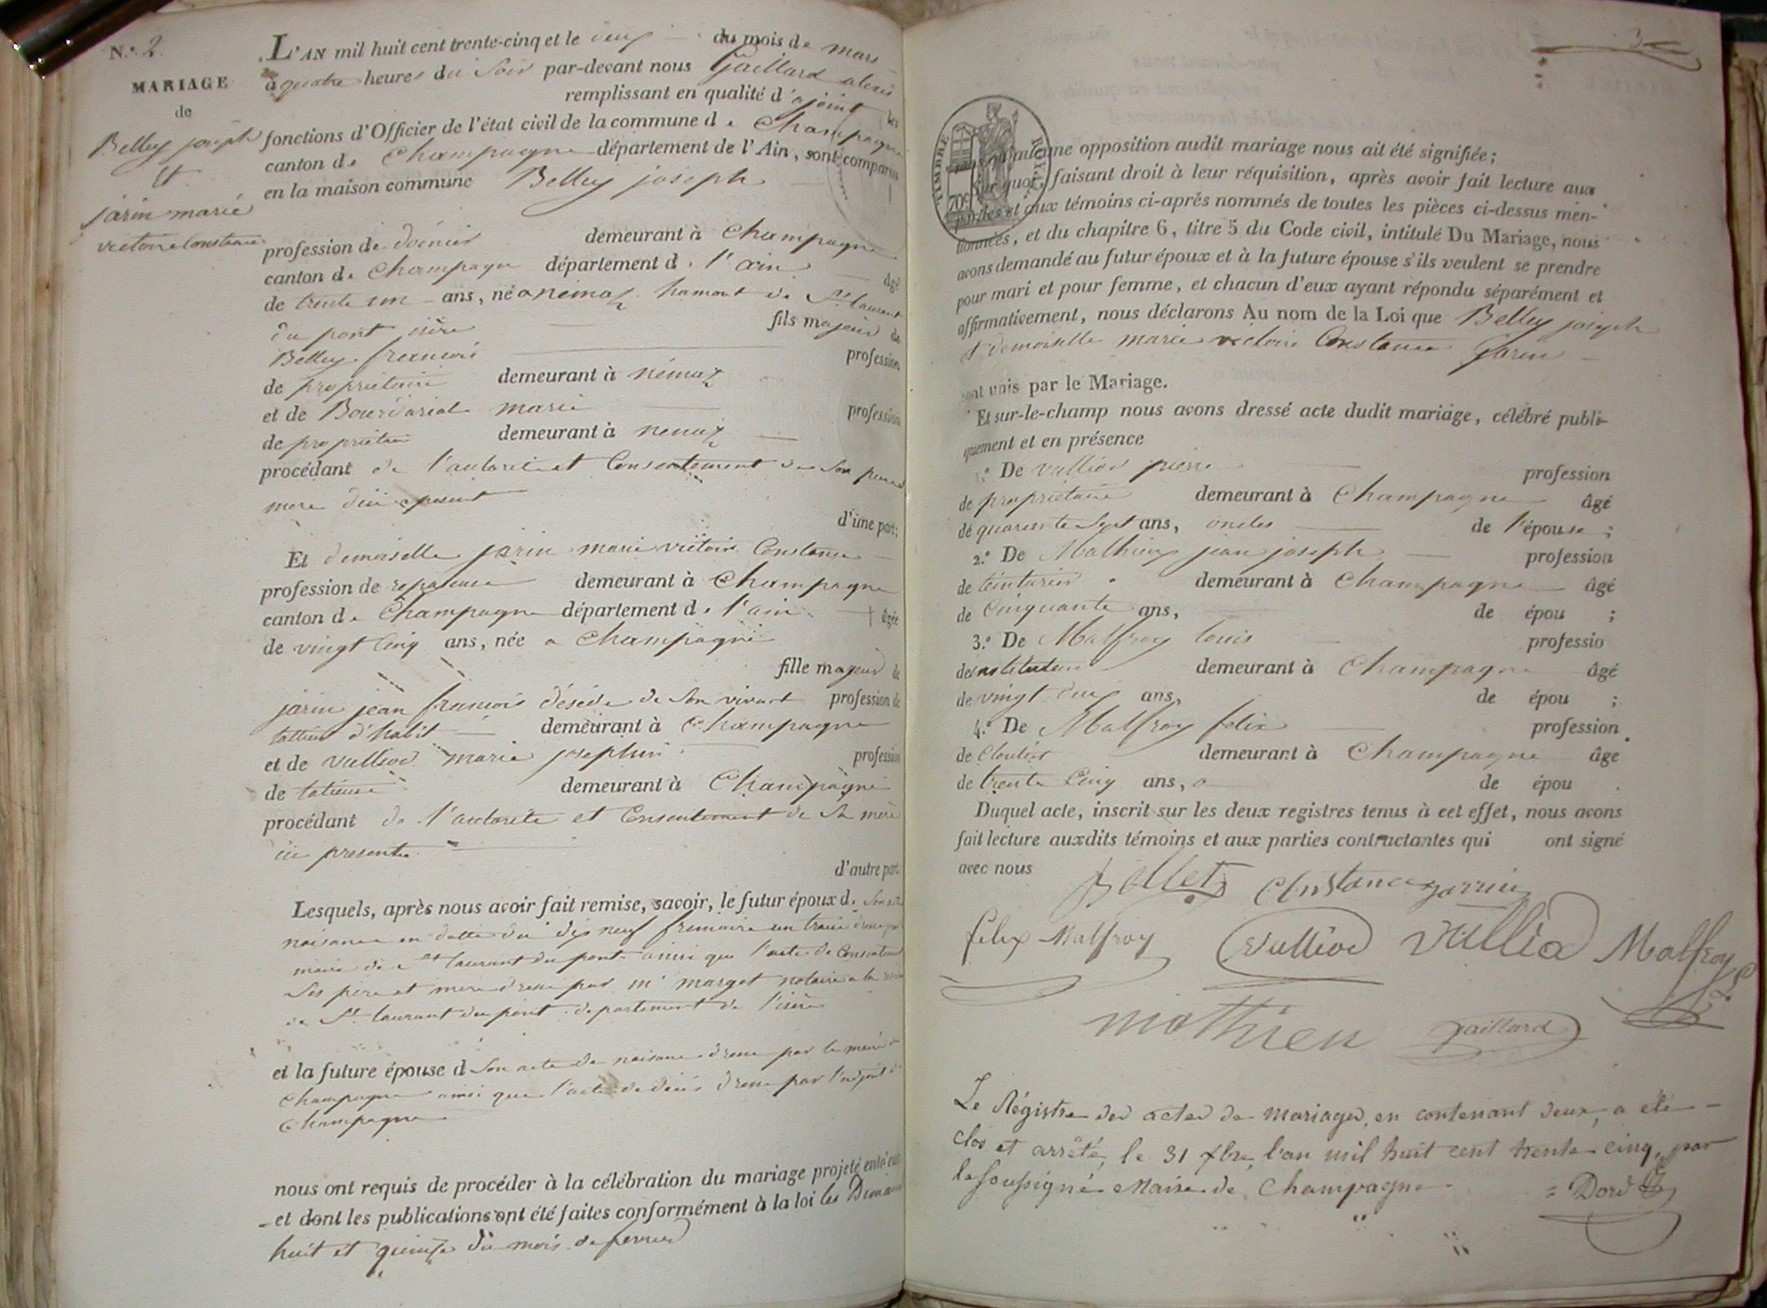 N.º 2.
MARIAGE
de
Belley joseph
Et
jarin marie
victoire Constance
L'AN mil huit cent trente-cinq et le deux du mois de mars
à quatre heures du Soir par-devant nous Gaillard alexis
remplissant en qualité d'ajoint les
fonctions d'Officier de l'état civil de la commune de Champagne
canton de Champagne département de l'Ain, sont comparus
en la maison commune Belley joseph
profession de demeurant à Champagne
canton de Champagne département de l'ain âgé
de trente un ans, né a nemoz hamont de St laurent
du pont isère fils majeur de
Belley francois profession
de propriétaire demeurant à némoz
et de Bourdariat marie profession
de propriétaire demeurant à nemoz
procédant de l'autorité et Consentement de Son pere et
mere
d'une part;
Et demoiselle jarin marie victoire Constance
profession de repasseuse demeurant à Champagne
canton de Champagne département de l'ain âgée
de vingt Cinq ans, née a Champagne
fille majeur de
jarin jean francois déséde de Son vivant profession de
tailleur d'habit demeurant à Champagne
et de vulliod marie josephine profession
de demeurant à Champagne
procédant de l'autorité et Consentement de Sa mere
ici presente
d'autre part.
Lesquels, après nous avoir fait remise, savoir, le futur époux de Son acte
naisance en datte du dix neuf frimaire an treize
maire de St laurent du pont ainsi que l'acte de Consentement
Ses pere et mere dresse par me margot notaire a la
de St laurent du pont departement de l'isère
et la future épouse d Son acte de naisance dresse par le maire de
Champagne ainsi que l'acte de déces dresse par l'adjoint de
Champagne
nous ont requis de procéder à la célébration du mariage projeté entr'eux
et dont les publications ont été faites conformément à la loi les Dimanches
huit et quinze du mois de fevrier
TIMBRE ROYAL
70c
qu'aucune opposition audit mariage nous ait été signifiée;
Sur quoi, faisant droit à leur réquisition, après avoir fait lecture aux
parties et aux témoins ci-après nommés de toutes les pièces ci-dessus men-
tionnées, et du chapitre 6, titre 5 du Code civil, intitulé Du Mariage, nous
avons demandé au futur époux et à la future épouse s'ils veulent se prendre
pour mari et pour femme, et chacun d'eux ayant répondu séparément et
affirmativement, nous déclarons Au nom de la Loi que Belley joseph
et Demoiselle marie victoire Constance jarin
sont unis par le Mariage.
Et sur-le-champ nous avons dressé acte dudit mariage, célébré publi-
quement et en présence
1.º De vulliod pierre profession
de propriétaire demeurant à Champagne âgé
de quarante Sept ans, oncles de l'épouse;
2.º De Mathieu jean joseph profession
de teinturier demeurant à Champagne âgé
de Cinquante ans, de épou ;
3.º De Malfroy louis professio
de instituteur demeurant à Champagne âgé
de vingt deux ans, de épou ;
4.º De Malfroy felix profession
de Cloutier demeurant à Champagne âge
de trente Cinq ans, de épou
Duquel acte, inscrit sur les deux registres tenus à cet effet, nous avons
fait lecture auxdits témoins et aux parties contractantes qui ont signé
avec nous
Bellet Constance jarrin
felix Malfroy Vulliod Vulliod Malfroy
mathieu gaillard
Le Régistre des actes de mariages, en contenant deux, a été
clos et arrêté, le 31 xbre, l'an mil huit cent trente cinq, par
le Soussigné Maire de Champagne